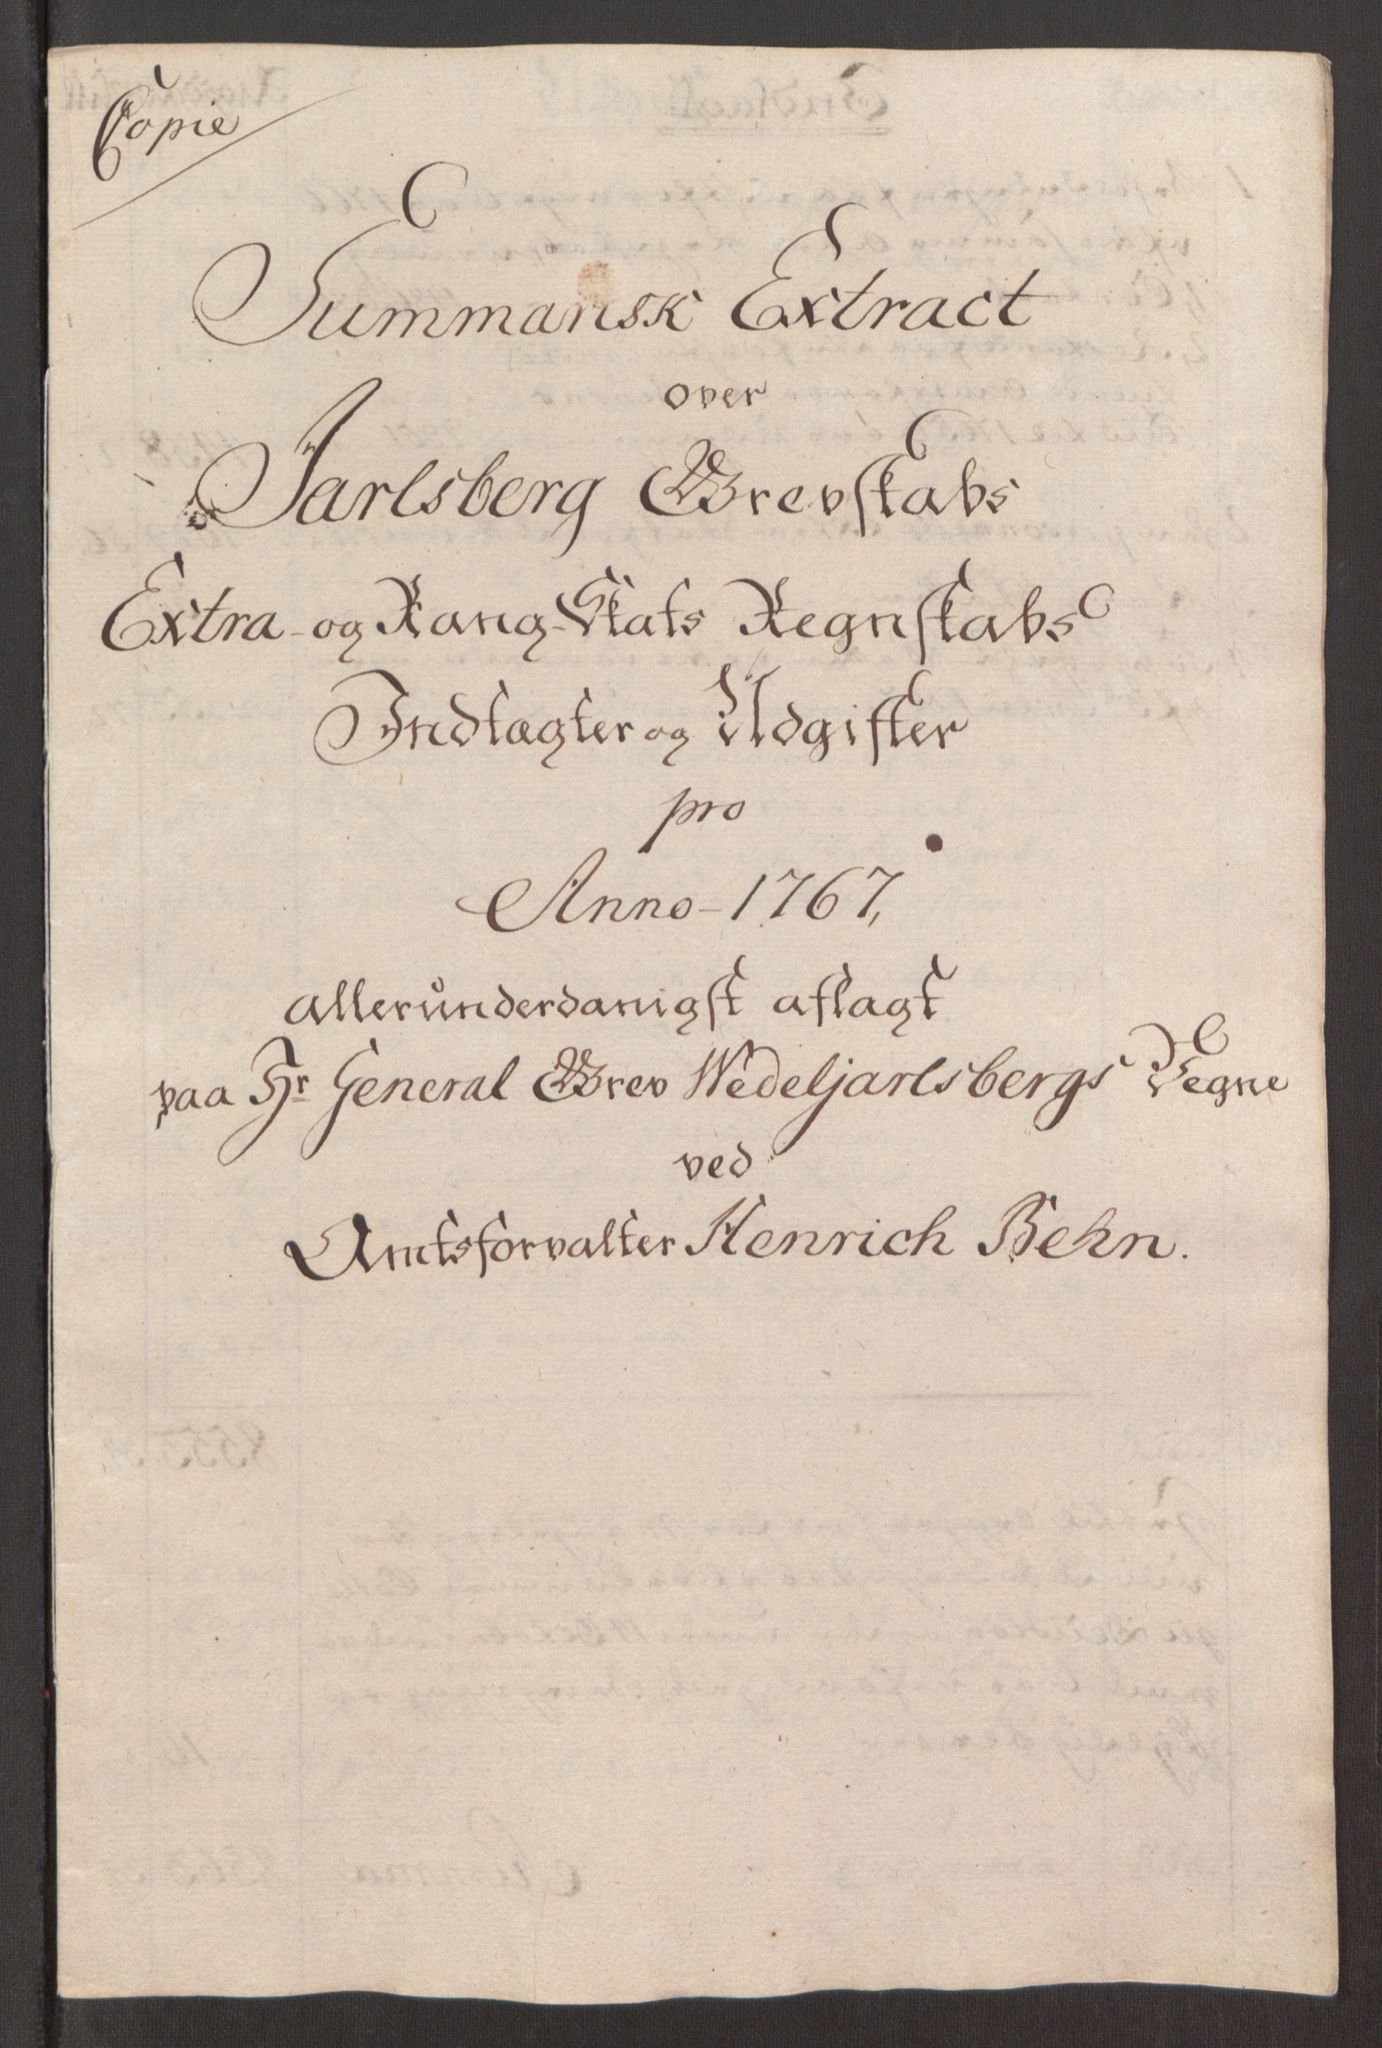 Copie
Summarisk Extract
over
Jarlsberg Grevskabs
Extra- og Rang-Skats Regnskabs
Indtægter og Udgifter
pro
Anno-1767,
allerunderdanigst aflagt
paa Hr General Grev Wedeljarlsbergs Vegne
ved
Amtsforvalter Henrich Behn.